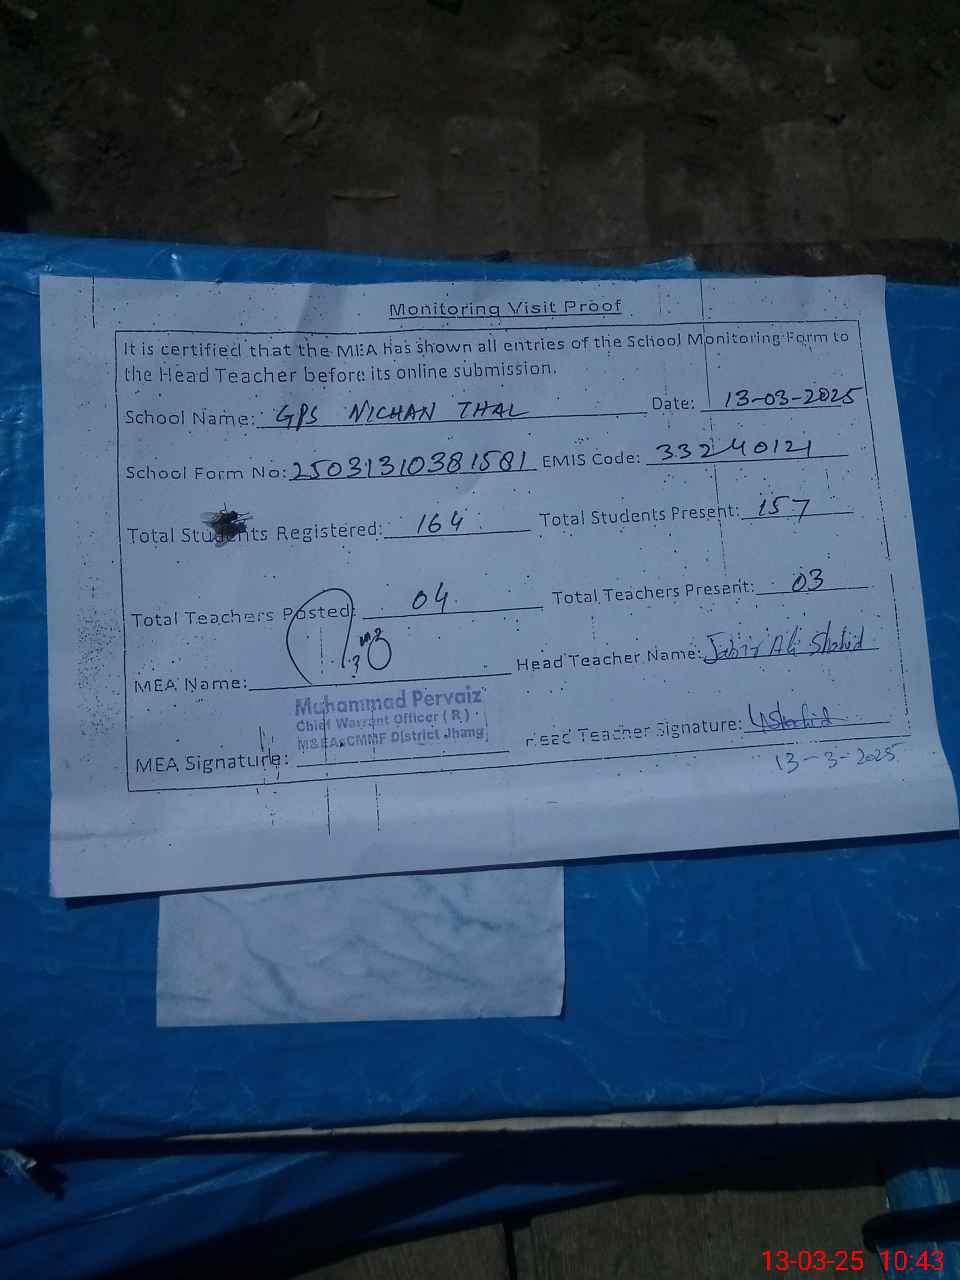 Monitoring Visit Proof
It is certified that the MEA has shown all entries of the School Monitoring Form to
the Head Teacher before its online submission.
School Name: GPS NICHAN THAL Date: 13-03-2025
School Form No: 25031310381581 EMIS Code: 33240121
Total Students Registered: 164 Total Students Present: 157
Total Teachers Posted: 04 Total Teachers Present: 03
MEA Name: Head Teacher Name: Jabir Ali Shahid
Muhammad Pervaiz
Chief Warrant Officer (R)
M&EA, CMMF District Jhang
MEA Signature: Head Teacher Signature: Shahid
13-3-2025
13-03-25 10:43